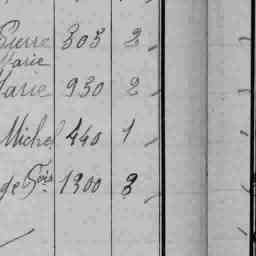 Pierre 305 2
Marie
Marie 930 2
Michel 440 1
ge Fois 1300 3